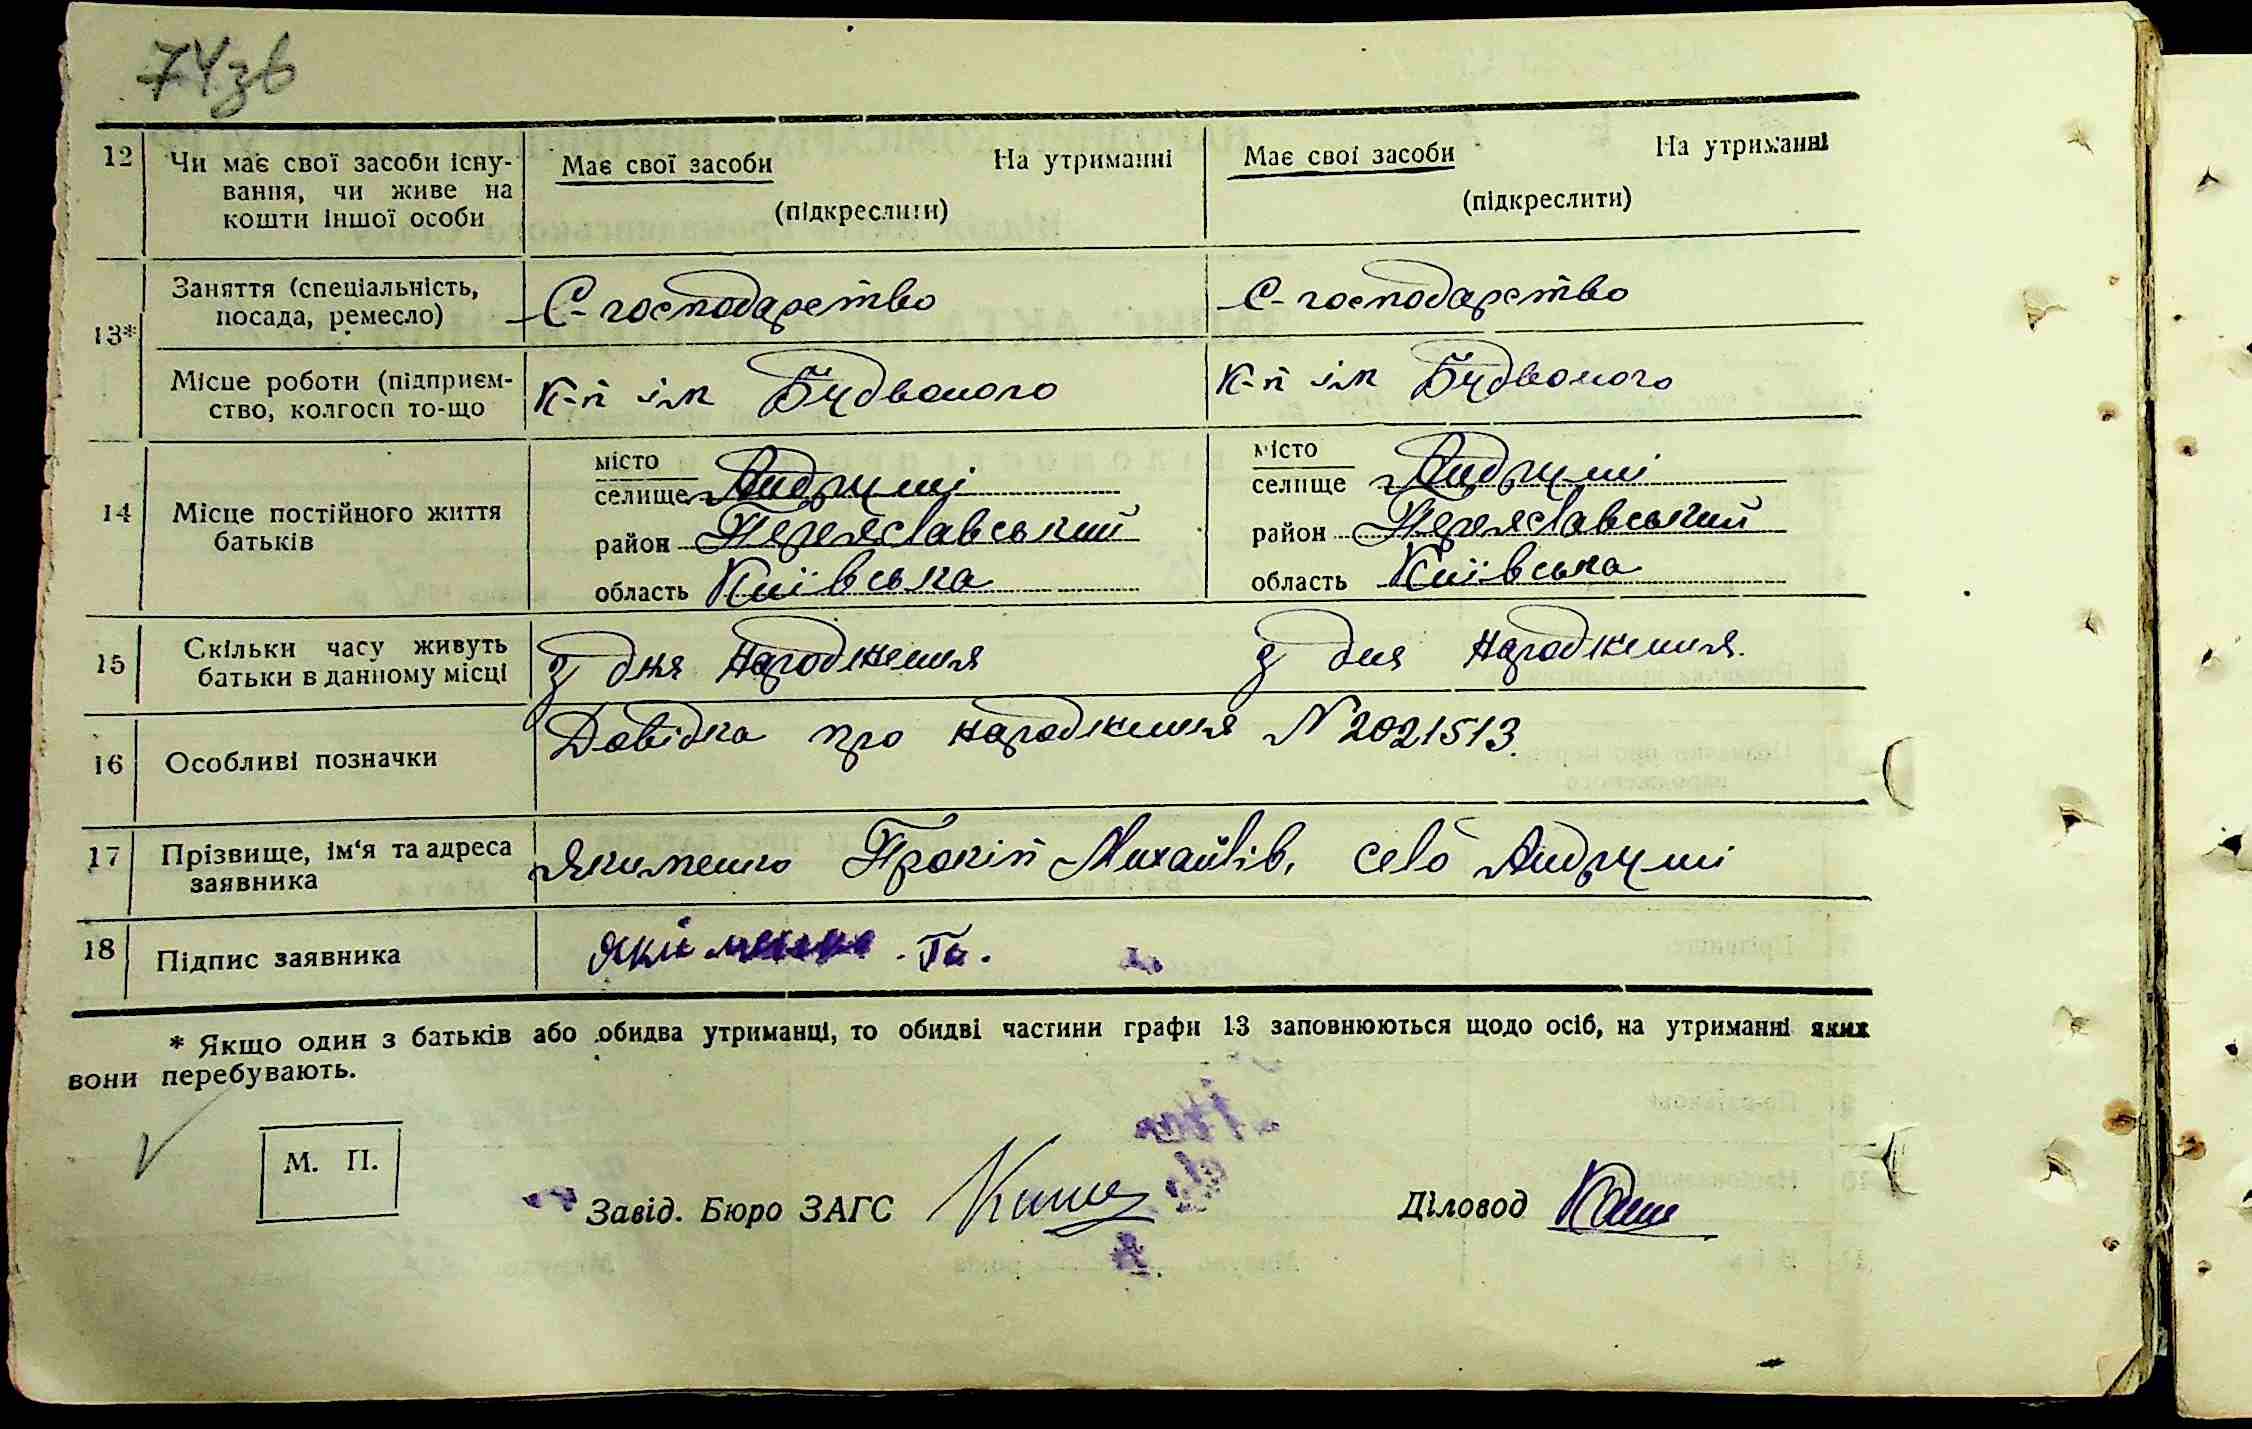 74зв
12 Чи має свої засоби існу- Має свої засоби На утриманні Має свої засоби На утриманні
вання, чи живе на (підкреслити) (підкреслити)
кошти іншої особи
13* Заняття (спеціальність, С-господарство С-господарство
посада, ремесло)
Місце роботи (підприєм- К-п ім Будьоного К-п ім Будьоного
ство, колгосп то-що
14 Місце постійного життя батьків
місто місто
селище Андруші селище Андруші
район Переяславський район Переяславський
область Київська область Київська
15 Скільки часу живуть з дня народження з дня народження.
батьки в данному місці
16 Особливі позначки Довідка про народження N 2021513.
17 Прізвище, ім‘я та адреса Якименко Прокіп Михайлів, село Андруші
заявника
18 Підпис заявника
* Якщо один з батьків або обидва утриманці, то обидві частини графи 13 заповнюються щодо осіб, на утриманні яких
вони перебувають.
М. П.
Завід. Бюро ЗАГС Діловод